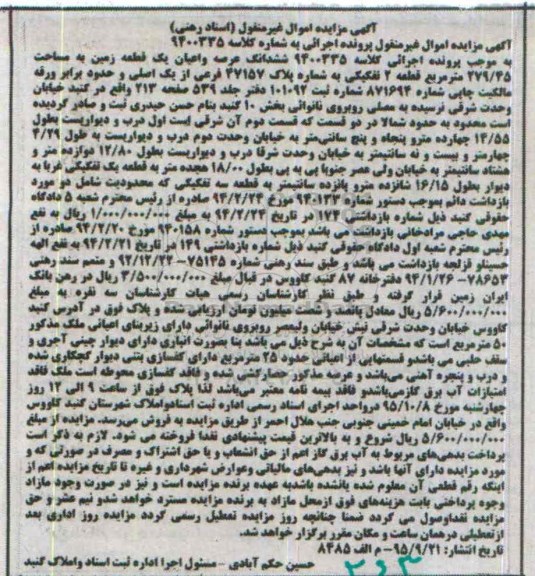 آگهی مزایده اموال غیرمنقول (اسناد رهنی)
آگهی مزایده اموال غیرمنقول پرونده اجرائی به شماره کلاسه ۹۴۰۰۳۳۵
به موجب پرونده اجرائی کلاسه ۹۴۰۰۳۳۵ ششدانگ عرصه واعیان یک قطعه زمین به مساحت
۲۷۹/۴۵ مترمربع قطعه ۲ تفکیکی به شماره پلاک ۴۷۱۵۷ فرعی از یک اصلی و حدود برابر ورقه
مالکیت چاپی شماره ۸۷۱۶۹۴ شماره ثبت ۱۰۱۰۹۲ دفتر جلد ۵۳۹ صفحه ۲۱۳ واقع در گنبد خیابان
وحدت شرقی نرسیده به مصلی روبروی نانوائی بخش ۱۰ گنبد بنام حسن حیدری ثبت و صادر گردیده
است محدود به حدود شمالا در دو قسمت که قسمت دوم آن شرقی است اول درب و دیواریست بطول
۱۴/۵۵ چهارده مترو پنجاه و پنج سانتی‌متر به خیابان وحدت دوم درب و دیواریست به طول ۴/۲۹
چهارمتر و بیست و نه سانتیمتر به خیابان وحدت شرقا درب و دیواریست بطول ۱۲/۸۰ دوازده متر و
هشتاد سانتیمتر به خیابان ولی عصر جنوبا پی به پی بطول ۱۸/۰۰ هجده متر به قطعه یک تفکیکی غربا به
دیوار بطول ۱۶/۱۵ شانزده مترو پانزده سانتیمتر به قطعه سه تفکیکی که محدودیت شامل دو مورد
بازداشت دائم بموجب دستور شماره ۹۴۰۱۳۳ مورخ ۹۴/۲/۲۴ صادره از رئیس محترم شعبه ۵ دادگاه
حقوقی گنبد ذیل شماره بازداشتی ۱۷۴ در تاریخ ۹۴/۲/۲۴ به مبلغ ۱/۰۰۰/۰۰۰/۰۰۰ ریال به نفع
مهدی حاجی مرادخانی بازداشت می باشد بموجب دستور شماره ۹۴۰۱۵۸ مورخ ۹۴/۲/۲۰ صادره از
رئیس محترم شعبه اول دادگاه حقوقی گنبد ذیل شماره بازداشتی ۱۴۹ در تاریخ ۹۴/۲/۲۱ به نفع الهه
حسینلو قزلجه بازداشت می باشد و طبق سند رهنی شماره ۷۵۱۴۵- ۹۲/۱۲/۲۲ و متمم سند رهنی
۷۸۶۵۳- ۹۴/۱/۲۶ دفترخانه ۸۷ گنبد کاووس در قبال مبلغ ۳/۵۰۰/۰۰۰/۰۰۰ ریال در رهن بانک
ایران زمین قرار گرفته و طبق نظر کارشناسان رسمی هیات کارشناسان سه نفره به مبلغ
۵/۶۰۰/۰۰۰/۰۰۰ ریال معادل پانصد و شصت میلیون تومان ارزیابی شده و پلاک فوق در آدرس گنبد
کاووس خیابان وحدت شرقی نبش خیابان ولیعصر روبروی نانوائی دارای زیربنای اعیانی ملک مذکور
۵۰ مترمربع است که مشخصات آن به شرح ذیل می باشد بنا بصورت انباری دارای دیوار چینی آجری و
سقف حلبی می باشدو قسمتهایی از اعیانی حدود ۲۵ مترمربع دارای کفسازی بتنی دیوار گچکاری شده
و درب و پنجره آهنی می‌باشد و عرصه مذکور حصارکشی شده و فاقد کفسازی محوطه است ملک فاقد
امتیازات آب برق گازمی‌باشدو فاقد بیمه نامه معتبر می‌باشد لذا پلاک فوق از ساعت ۹ الی ۱۲ روز
چهارشنبه مورخ ۹۵/۱۰/۸ درواحد اجرای اسناد رسمی اداره ثبت اسنادواملاک شهرستان گنبد کاووس
واقع در خیابان امام خمینی جنوبی جنب هلال احمر از طریق مزایده به فروش می‌رسد. مزایده از مبلغ
۵/۶۰۰/۰۰۰/۰۰۰ ریال شروع و به بالاترین قیمت پیشنهادی نقدا فروخته می شود. لازم به ذکر است
پرداخت بدهی‌های مربوط به آب برق گاز اعم از حق انشعاب و یا حق اشتراک و مصرف در صورتی که و
مورد مزایده دارای آنها باشد و نیز بدهی‌های مالیاتی وعوارض شهرداری و غیره تا تاریخ مزایده اعم از
اینکه رقم قطعی آن معلوم شده یانشده باشدبه عهده برنده مزایده است و نیز در صورت وجود مازاد
وجوه پرداختی بابت هزینه‌های فوق ازمحل مازاد به برنده مزایده مسترد خواهد شدو نیم عشر و حق
مزایده نقداوصول می گردد ضمنا چنانچه روز مزایده تعطیل رسمی گردد مزایده روز اداری بعد
ازتعطیلی درهمان ساعت و مکان مقرر برگزار خواهد شد.
تاریخ انتشار: ۹۵/۹/۲۱- م الف ۸۴۸۵
حسین حکم آبادی - مسئول اجرا اداره ثبت اسناد واملاک گنبد